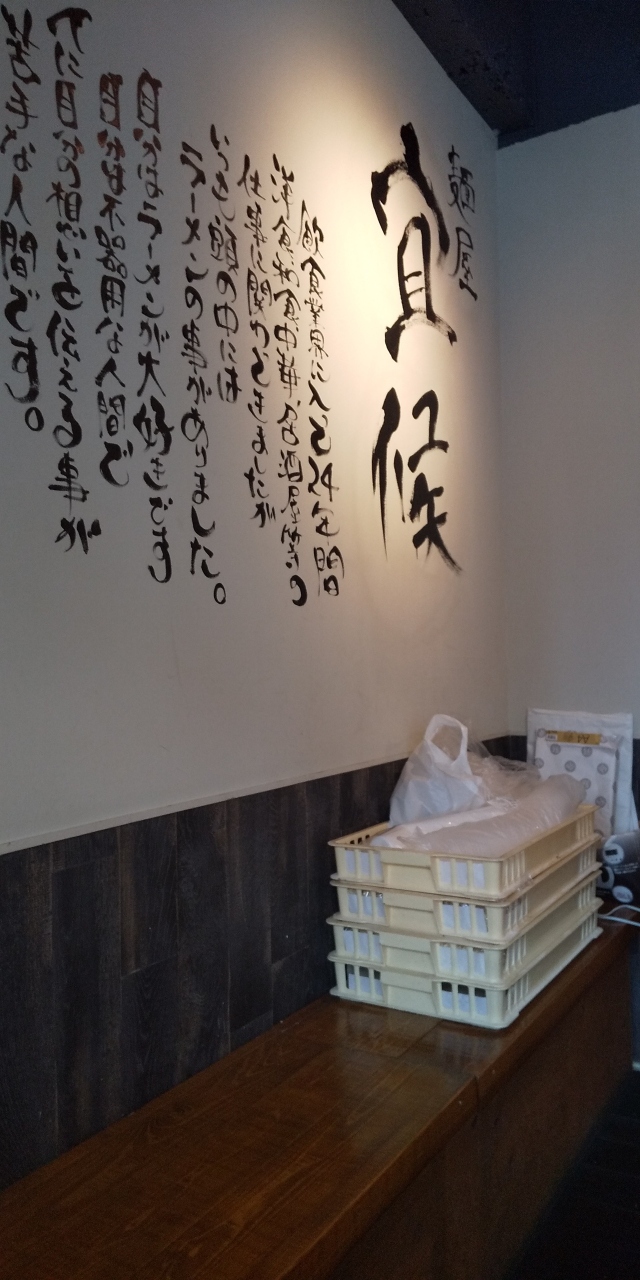 麺屋
宜候
飲食業界に入って25年間
洋食和食中華居酒屋など
仕事に関わってきましたが
いつも頭の中には
ラーメンの事がありました。
自分はラーメンが大好きです
自分は不器用な人間で
人に自分の想いを伝える事が
苦手な人間です。